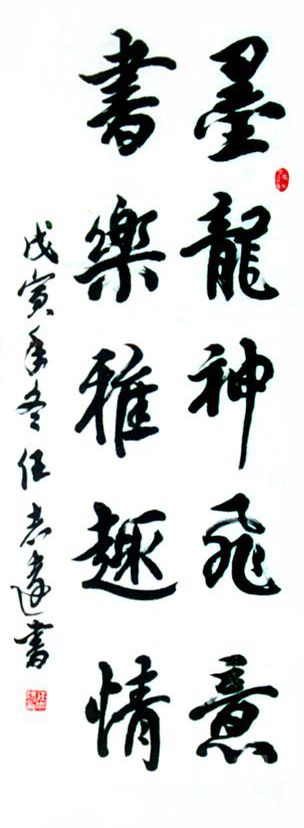 墨龍神飛意
書樂雅趣情
戊寅年冬任志達書